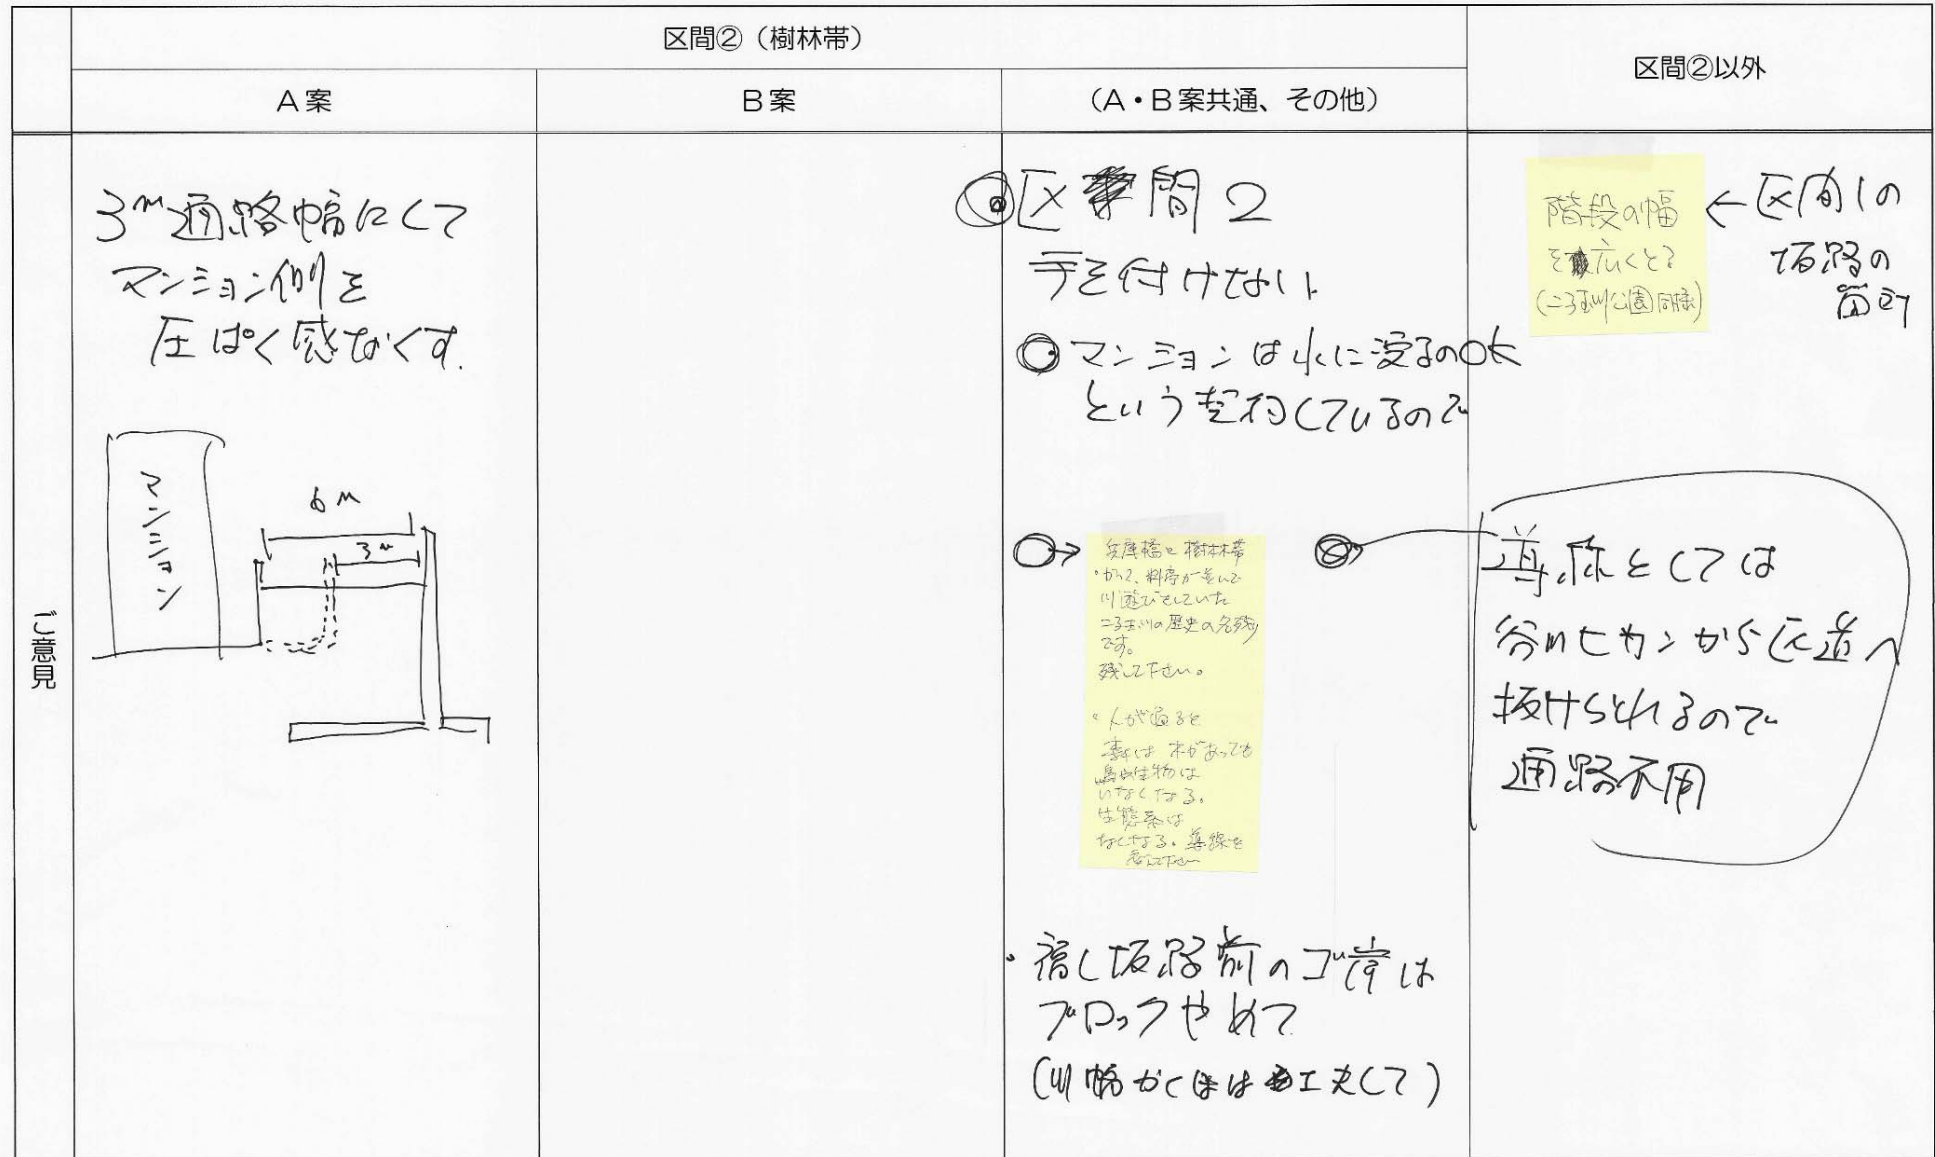 区間②（樹林帯）
区間②以外
A案
B案
（A・B案共通、その他）
ご意見
3m通路幅にして
マンション側を
圧ぱく感なくす.
マンション
6m
3m
区間2
手を付けない
マンションは水に浸るのOK
という契約しているので
兵庫橋と樹林帯
・かつて、料亭が並んで
川遊びをしていた
二子玉川の歴史の名残り
です。
残して下さい。
・人が通ると
木があっても
生物は
いなくなる。
生態系は
なくなる。導線を
・坂路前のゴ岸は
ブロックやめて
(川幅かくほは工夫して)
階段の幅
を広くとる
(二子玉川公園同様)
←区間1の
坂路の
箇所
導線としては
谷川ヒカンから区道へ
抜けられるので
通路不用